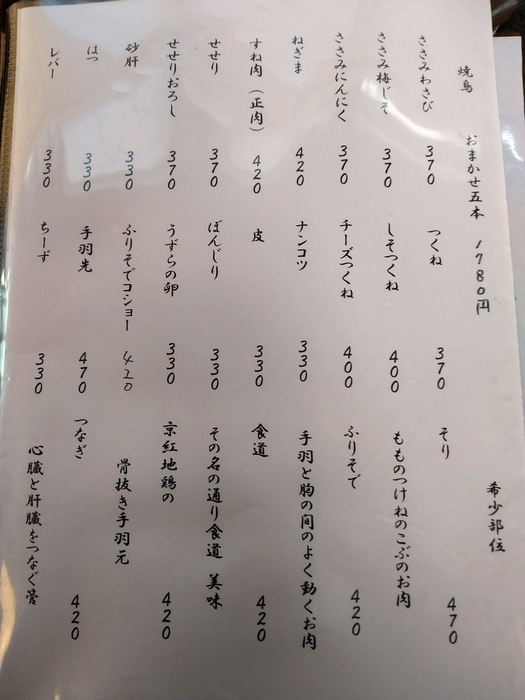 焼鳥　おまかせ五本　1780円
ささみわさび　370
ささみ梅じそ　370
ささみにんにく　370
ねぎま　420
すね肉（正肉）　420
せせり　370
せせりおろし　370
砂肝　330
はつ　330
レバー　330
つくね　370
しそつくね　400
チーズつくね　400
ナンコツ　330
皮　330
ぼんじり　330
うずらの卵　330
ふりそでコショー　420
手羽先　470
ちーず　330
希少部位
そり　470
もものつけねのこぶのお肉
ふりそで　420
手羽と胸の間のよく動くお肉
食道　420
その名の通り食道　美味
京紅地鶏の　420
骨抜き手羽元
つなぎ　420
心臓と肝臓をつなぐ管